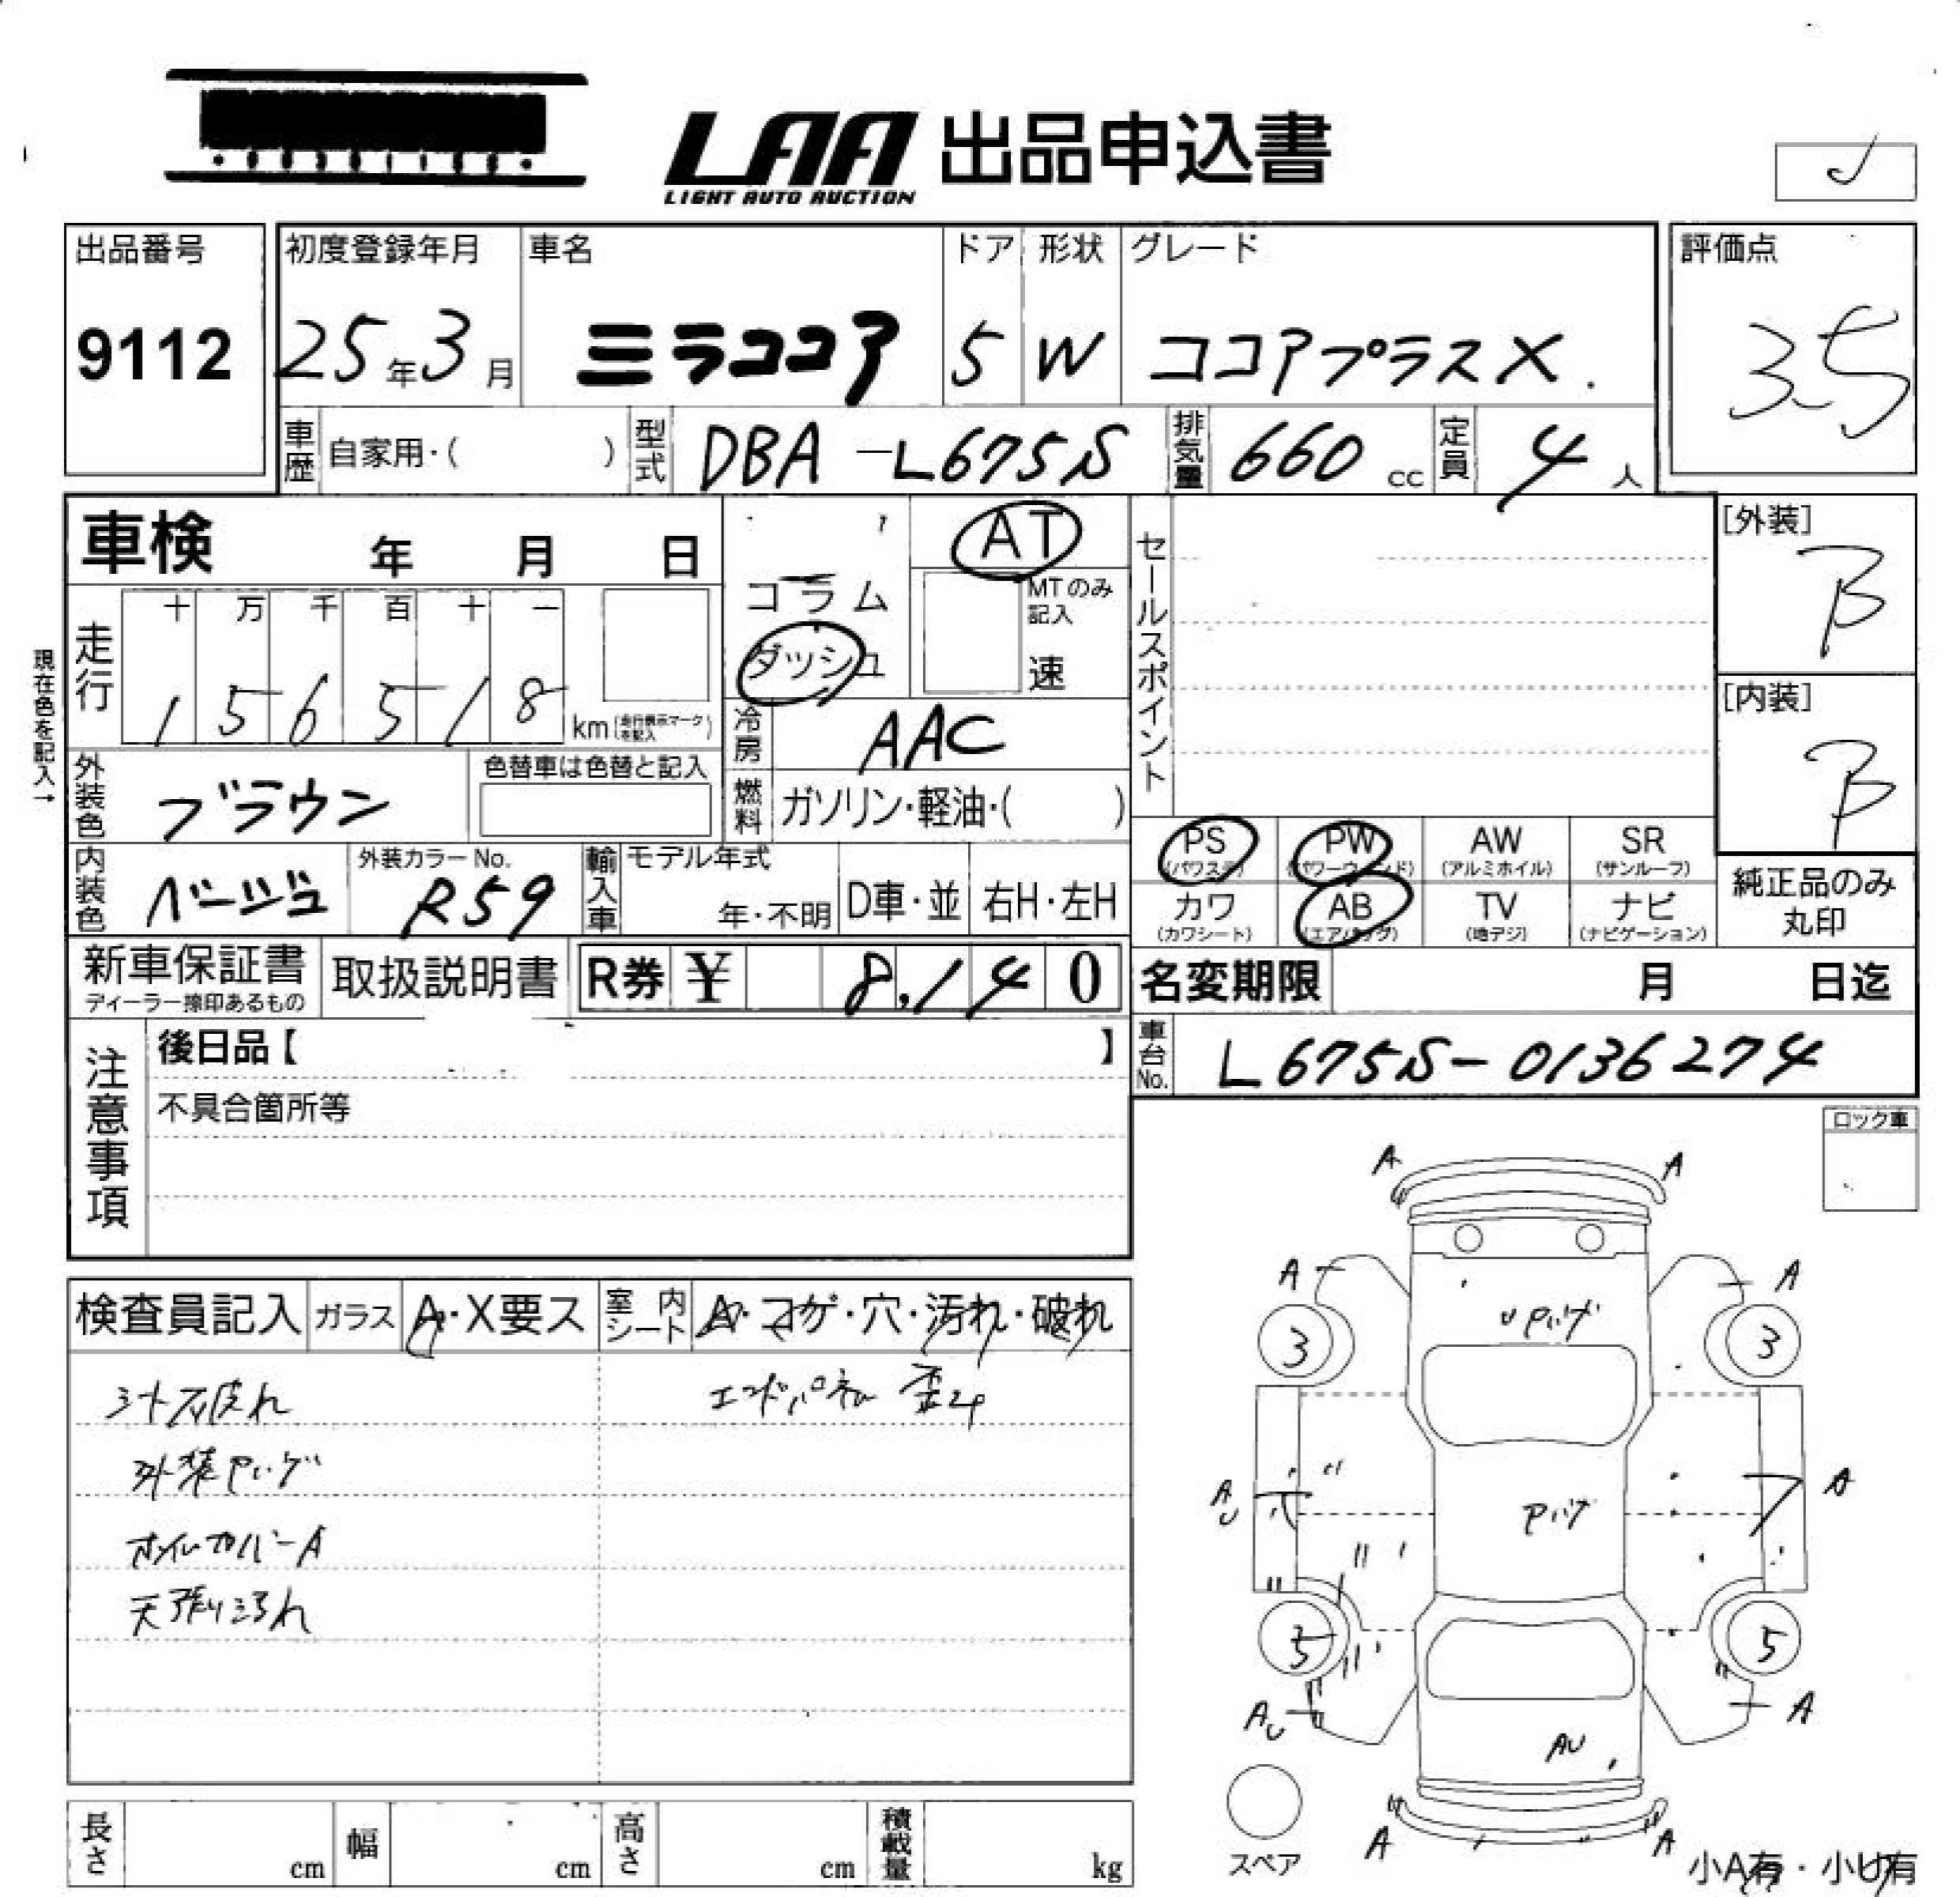 LAA 出品申込書
LIGHT AUTO AUCTION
出品番号
9112
初度登録年月
25年3月
車名
ミラココア
ドア
5
形状
W
グレード
ココアプラスX
評価点
3.5
車歴
自家用・( )
型式
DBA-L675S
排気量
660 cc
定員
4 人
車検 年 月 日
コラム
ダッシュ
AT
MTのみ記入
速
セールスポイント
[外装]
B
[内装]
B
現在色を記入→
走行
十 万 千 百 十 一
1 5 6 5 1 8 km (走行表示マークを記入)
冷房
AAC
外装色
ブラウン
色替車は色替と記入
燃料
ガソリン・軽油・( )
内装色
ベージュ
外装カラーNo.
R59
輸入車
モデル年式
年・不明
D車・並
右H・左H
PS (パワステ)
PW (パワーウィンド)
AW (アルミホイル)
SR (サンルーフ)
カワ (カワシート)
AB (エアバッグ)
TV (地デジ)
ナビ (ナビゲーション)
純正品のみ丸印
新車保証書
ディーラー捺印あるもの
取扱説明書
R券 ¥ 8,140
名変期限 月 日迄
注意事項
後日品【 】
不具合箇所等
車台No.
L675S-0136274
ロック車
検査員記入
ガラス
A・X要ス
室内シート
A・コゲ・穴・汚れ・破れ
エンドパネル 歪み
外装
天張り汚れ
A A
A A
3 3
A
U
A
5 5
AU A
AU
A A
スペア
小A有・小U有
長さ cm
幅 cm
高さ cm
積載量 kg